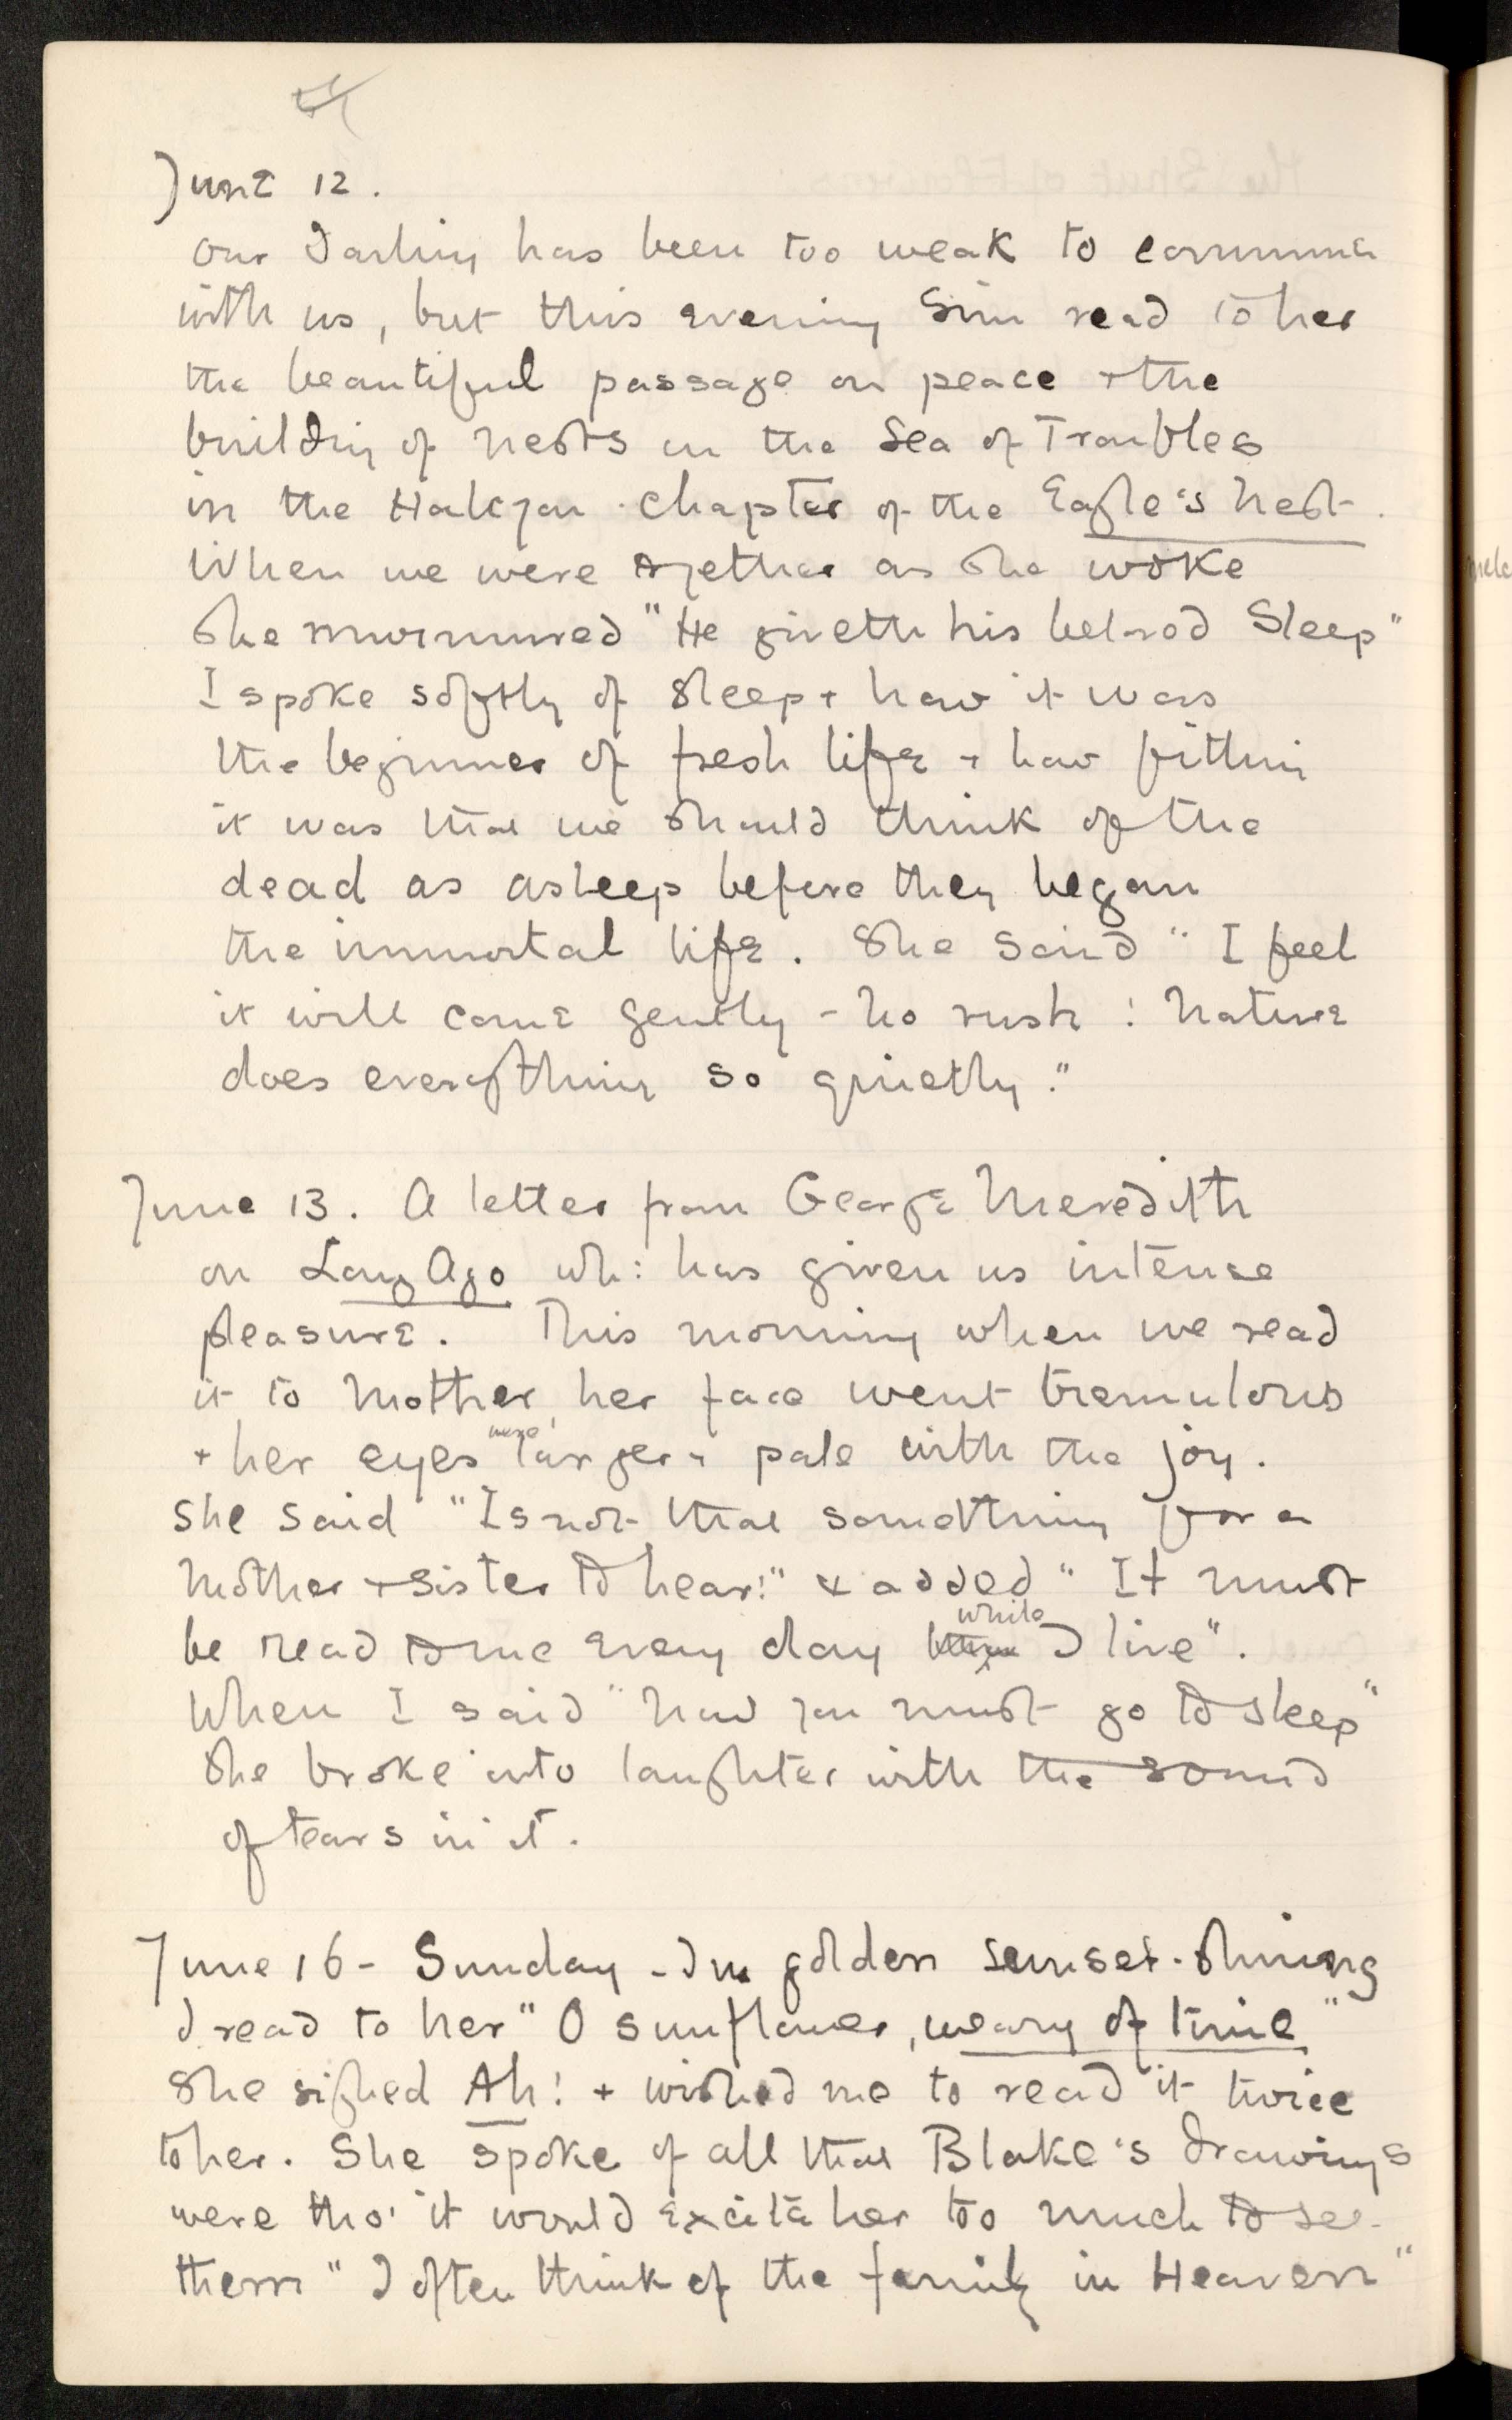 June 12.
Our Darling has been too weak to commune
with us, but this evening Sim read to her
the beautiful passage on peace + the
building of nests in the Sea of Troubles
in the Halcyon chapter of the Eagle's Nest.
When we were together as she woke
she murmured "He giveth his beloved Sleep"
I spoke softly of sleep + how it was
the beginner of fresh life + how fitting
it was that we should think of the
dead as asleep before they began
the immortal life. She said "I feel
it will come gently - no rush : Nature
does everything so quietly."
June 13. A letter from George Meredith
on Long Ago wh: has given us intense
pleasure. This morning when we read
it to Mother, her face went tremulous
+ her eyes were larger + pale with the joy.
She said "Is not that something for a
Mother + sister to hear!" & added "It must
be read to me every day while I live".
When I said "now you must go to sleep"
she broke into laughter with the sound
of tears in it.
June 16 - Sunday - In golden sunset-shining
I read to her "O sunflower, weary of time"
She sighed Ah! + wished me to read it twice
to her. She spoke of all that Blake's drawings
were tho' it would excite her too much to see
them "I often think of the family in Heaven"